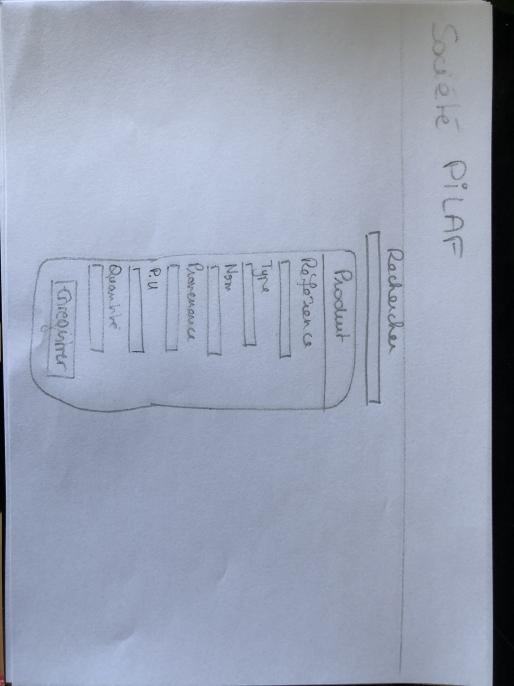 Société PiLAF
Rechercher
Produit
Référence
Type
Nom
Provenance
P.U
Quantité
Enregistrer